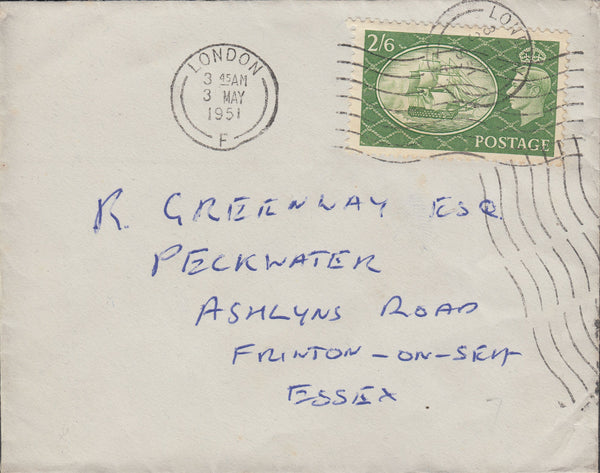 LONDON
3 45AM
3 MAY
1951
F
LON
2/6
POSTAGE
R. GREENWAY ESQ
PECKWATER
ASHLYNS ROAD
FRINTON-ON-SEA
ESSEX